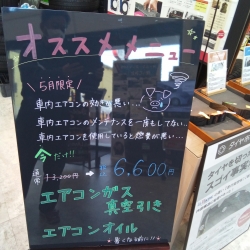 オススメメニュー
5月限定
車内エアコンの効きが悪い...
車内エアコンのメンテナンスを一度もしてない...
車内エアコンを使用していると燃費が悪い...
今だけ!!
通常
13,200円
6,600円
エアコンガス
真空引き
エアコンオイル
暑くなる前に!!